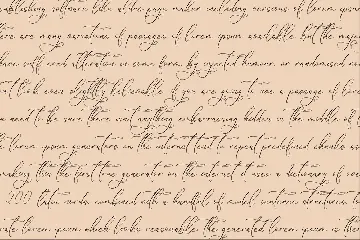 publishing software like aldus page maker including versions of lorem ipsum
there are many variations of passages of lorem ipsum available but the majo
have suffered alteration in some form by injected humour or randomised
look even slightly believable if you are going to use a passage of lorem
need to be sure there isn't anything embarrassing hidden in the middle of
lorem ipsum generators on the internet tend to repeat predefined chunks as
making this the first true generator on the internet it uses a dictionary of over
200 latin words combined with a handful of model sentence structures to
generate lorem ipsum which looks reasonable the generated lorem ipsum is ther